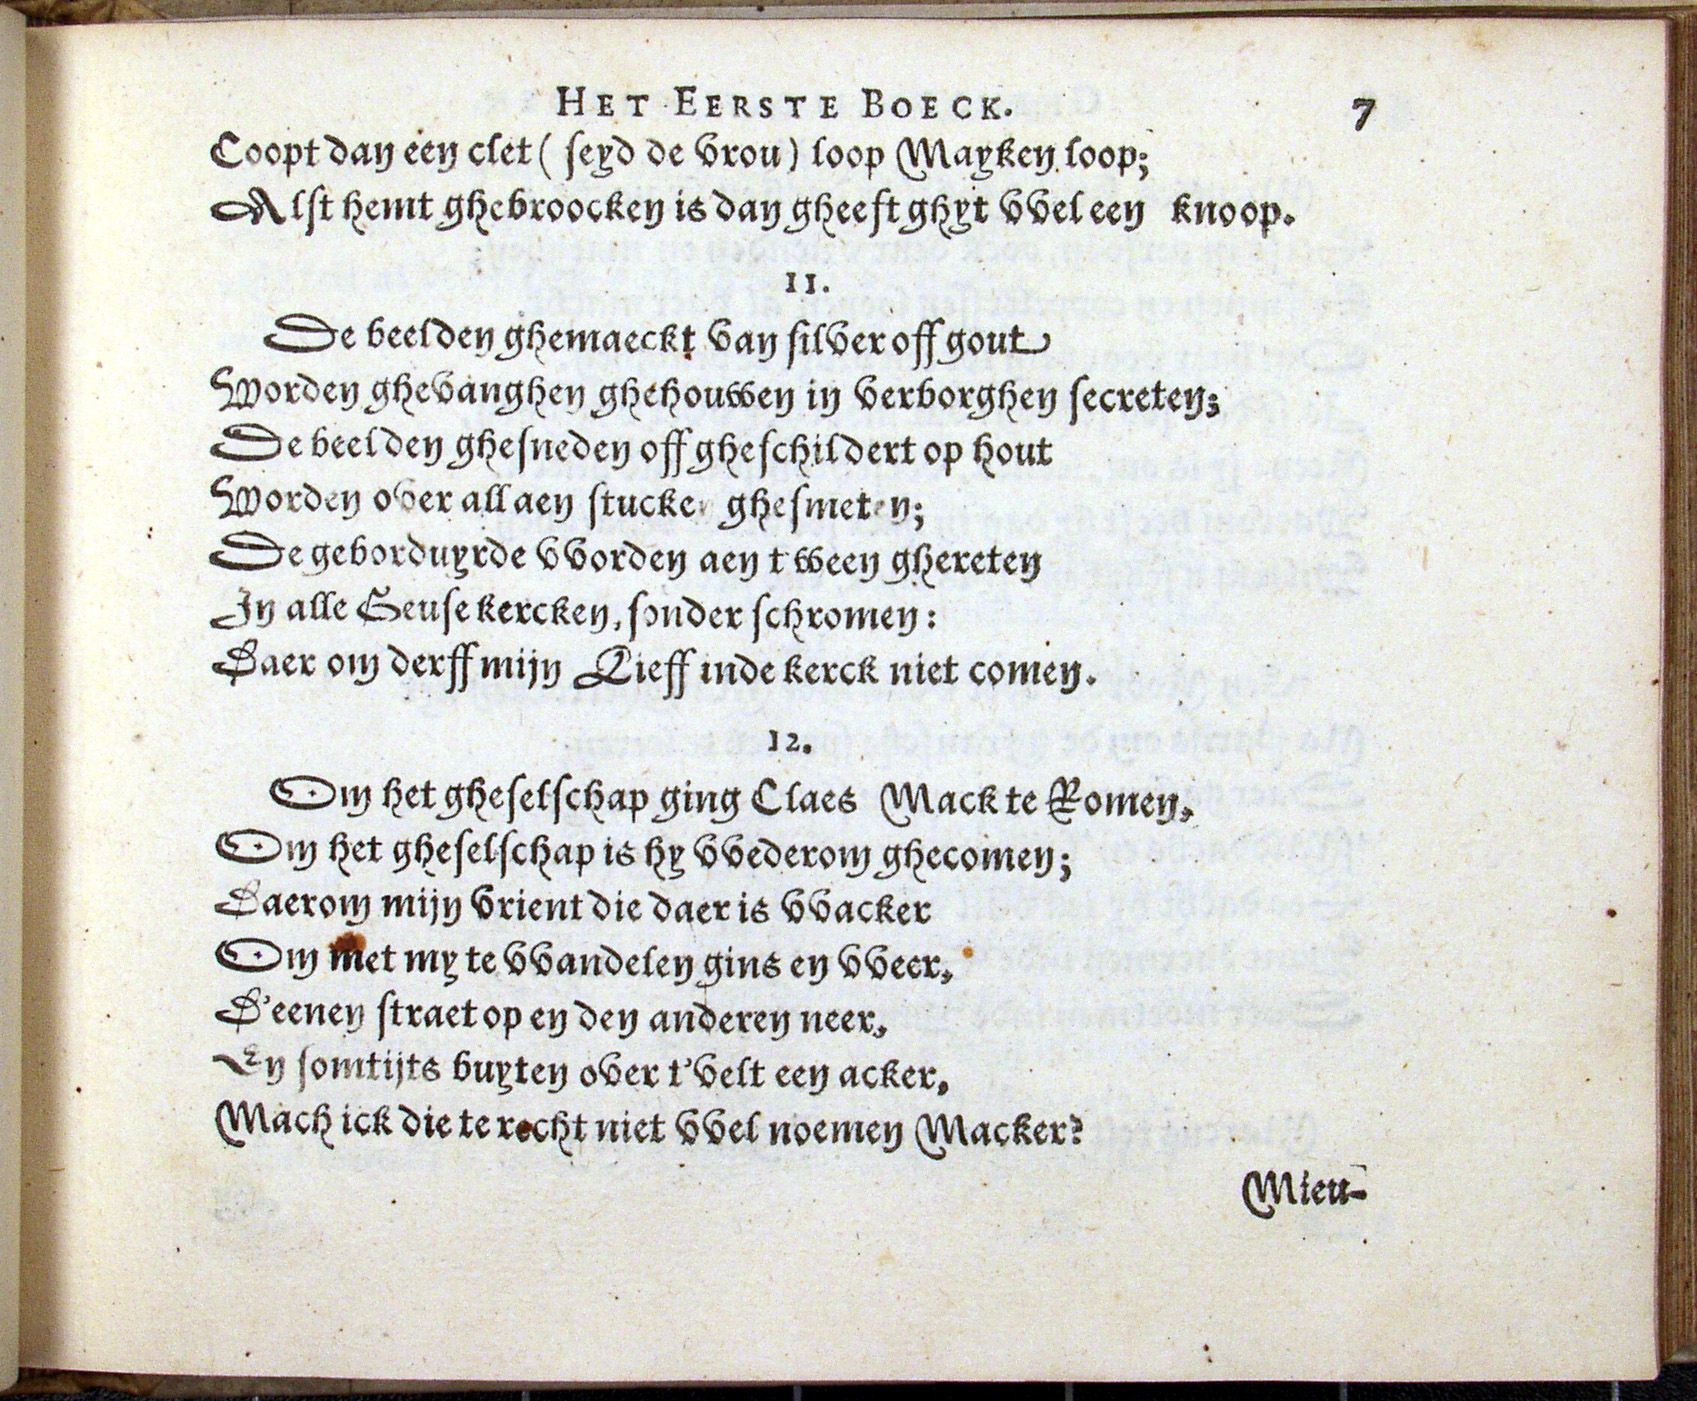 HET EERSTE BOECK. 7
Coopt dan een clet ( seyd de vrou ) loop Mayken loop;
Alst hemt ghebroocken is dan gheeft ghyt vvel een knoop.
11.
De beelden ghemaeckt van silver off gout
Worden ghevanghen ghehouwen in verborghen secreten;
De beelden ghesneden off gheschildert op hout
Worden over all aen stucken ghesmeten;
De geborduyrde vvorden aen tween ghereten
In alle Geuse kercken, sonder schromen:
Daer om derff mijn Lieff inde kerck niet comen.
12.
Om het gheselschap ging Claes Mack te Romen,
Om het gheselschap is hy vvederom ghecomen;
Daerom mijn vrient die daer is vvacker
Om met my te vvandelen gins en vveer,
D'eenen straet op en den anderen neer,
En somtijts buyten over t'velt een acker,
Mach ick die te recht niet vvel noemen Macker?
Mieu-